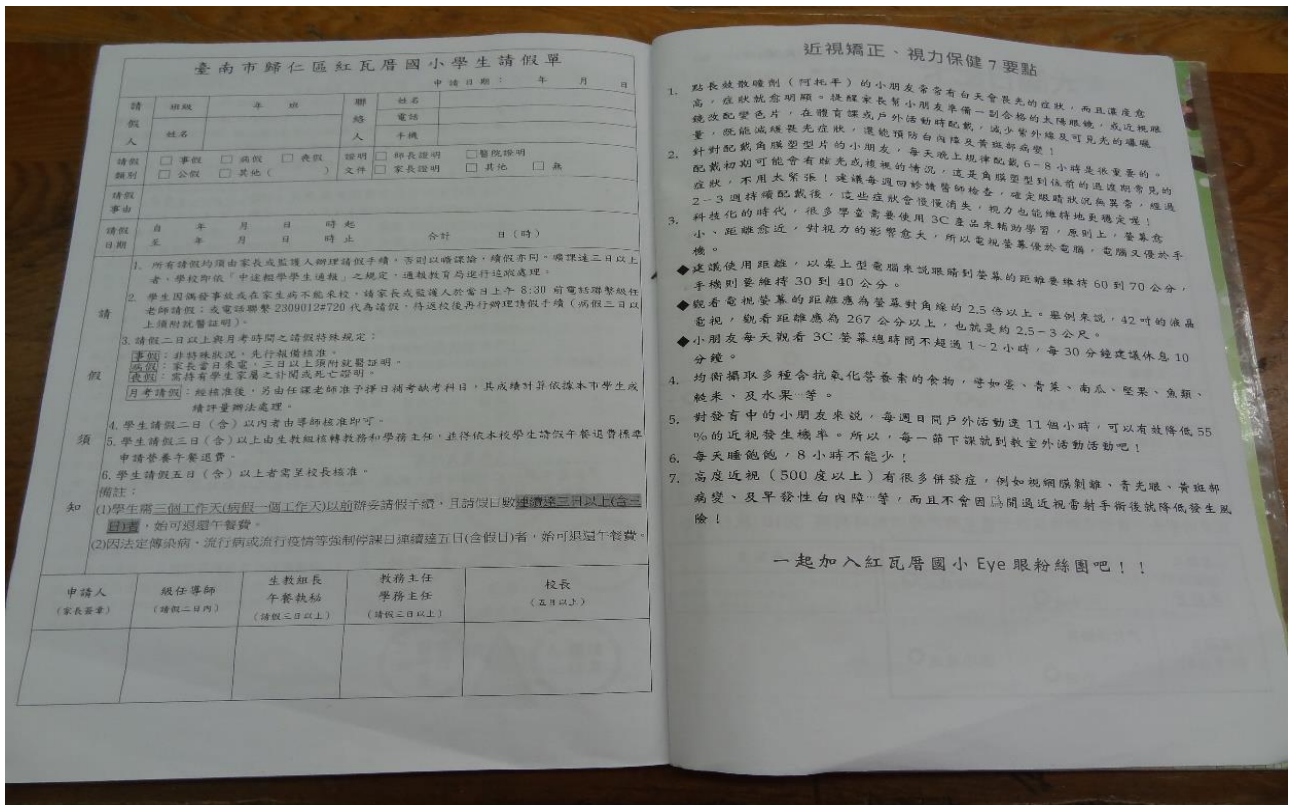 臺南市歸仁區紅瓦厝國小學生請假單
申請日期： 年 月 日
請假人 班級 年 班 聯絡人 姓名
電話
姓名 手機
請假類別 □事假 □病假 □喪假 證明文件 □師長證明 □醫院證明
□公假 □其他( ) □家長證明 □其他 □無
請假事由
請假日期 自 年 月 日 時 起
至 年 月 日 時 止 合計 日(時)
請假須知
1. 所有請假均須由家長或監護人辦理請假手續，否則以曠課論，續假亦同。曠課達三日以上
者，學校即依「中途輟學學生通報」之規定，通報教育局進行追蹤處理。
2. 學生因偶發事故或在家生病不能來校，請家長或監護人於當日上午 8:30 前電話聯繫級任
老師請假；或電話聯繫 2309012#720 代為請假，待返校後再行辦理請假手續（病假三日以
上須附就醫証明）。
3. 請假二日以上與月考時間之請假特殊規定：
事假：非特殊狀況，先行報備核准。
病假：家長當日來電，三日以上須附就醫証明。
喪假：需持有學生家屬之訃聞或死亡證明。
月考請假：經核准後，另由任課老師准予擇日補考缺考科目，其成績計算依據本市學生成
績評量辦法處理。
4. 學生請假二日（含）以內者由導師核准即可。
5. 學生請假三日（含）以上由生教組核轉教務和學務主任，並得依本校學生請假午餐退費標準
申請營養午餐退費。
6. 學生請假五日（含）以上者需呈校長核准。
備註：
(1)學生需三個工作天(病假一個工作天)以前辦妥請假手續，且請假日數連續達三日以上(含三
日)者，始可退還午餐費。
(2)因法定傳染病、流行病或流行疫情等強制停課日連續達五日(含假日)者，始可退還午餐費。
申請人 級任導師 生教組長 教務主任 校長
午餐執秘 學務主任
（家長簽章） （請假二日內） （請假三日以上） （請假三日以上） （五日以上）
近視矯正、視力保健 7 要點
1. 點長效散瞳劑（阿托平）的小朋友常常有白天會畏光的症狀，而且濃度愈
高，症狀就愈明顯。提醒家長幫小朋友準備一副合格的太陽眼鏡，或近視眼
鏡改配變色片，在體育課或戶外活動時配戴，減少紫外線及可見光的曝曬
量，既能減緩畏光症狀，還能預防白內障及黃斑部病變！
2. 針對配戴角膜塑型片的小朋友，每天晚上規律配戴 6-8 小時是很重要的。
配戴初期可能會有眩光或複視的情況，這是角膜塑型到位前的過渡期常見的
症狀，不用太緊張！建議每週回診請醫師檢查，確定眼睛狀況無異常，經過
2-3 週持續配戴後，這些症狀會慢慢消失，視力也能維持地更穩定喔！
3. 科技化的時代，很多學童需要使用 3C 產品來輔助學習，原則上，螢幕愈
小、距離愈近，對視力的影響愈大，所以電視螢幕優於電腦，電腦又優於手
機。
◆建議使用距離，以桌上型電腦來說眼睛到螢幕的距離要維持 60 到 70 公分，
手機則要維持 30 到 40 公分。
◆觀看電視螢幕的距離應為螢幕對角線的 2.5 倍以上。舉例來說，42 吋的液晶
電視，觀看距離應為 267 公分以上，也就是約 2.5-3 公尺。
◆小朋友每天觀看 3C 螢幕總時間不超過 1~2 小時，每 30 分鐘建議休息 10
分鐘。
4. 均衡攝取多種含抗氧化營養素的食物，譬如蛋、青菜、南瓜、堅果、魚類、
糙米、及水果…等。
5. 對發育中的小朋友來說，每週日間戶外活動達 11 個小時，可以有效降低 55
%的近視發生機率。所以，每一節下課就到教室外活動活動吧！
6. 每天睡飽飽，8 小時不能少！
7. 高度近視（500 度以上）有很多併發症，例如視網膜剝離、青光眼、黃斑部
病變、及早發性白內障…等，而且不會因為開過近視雷射手術後就降低發生風
險！
一起加入紅瓦厝國小 Eye 眼粉絲團吧！！